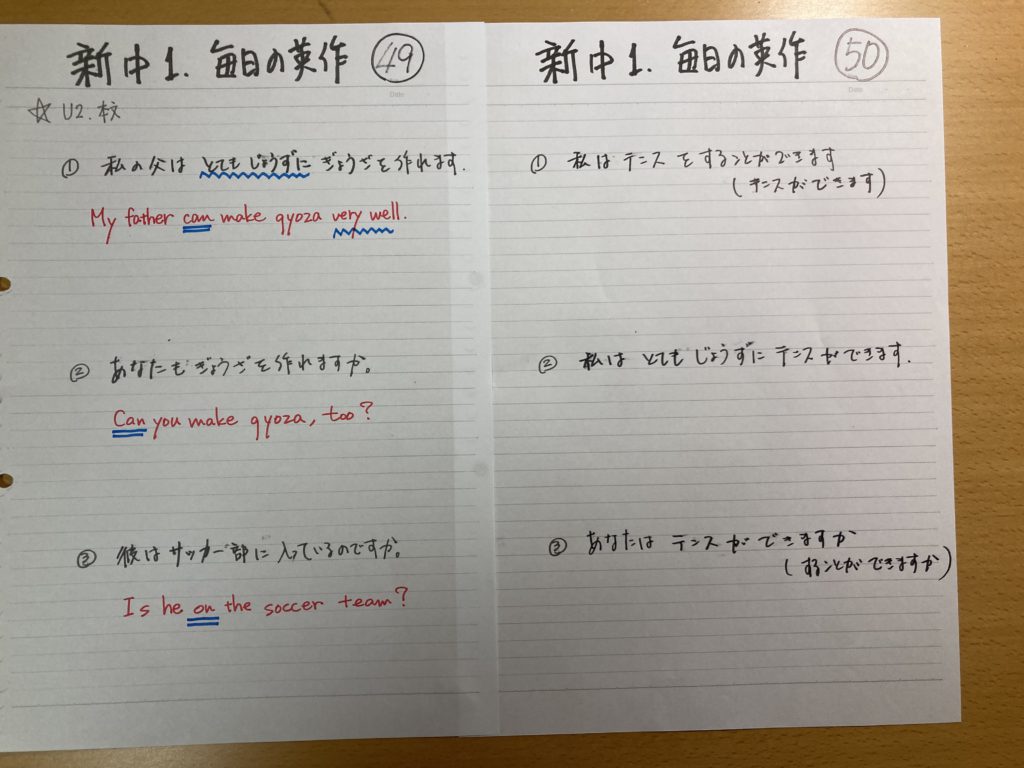 新中1. 毎日の英作 49
Date
☆ U2. 本文
① 私の父は とてもじょうずに ぎょうざを作れます.
My father can make gyoza very well.
② あなたもぎょうざを作れますか。
Can you make gyoza, too?
③ 彼はサッカー部に入っているのですか。
Is he on the soccer team?
新中1. 毎日の英作 50
Date
① 私はテニスをすることができます
(テニスができます)
② 私は とても じょうずに テニスができます.
③ あなたは テニスができますか
(することができますか)